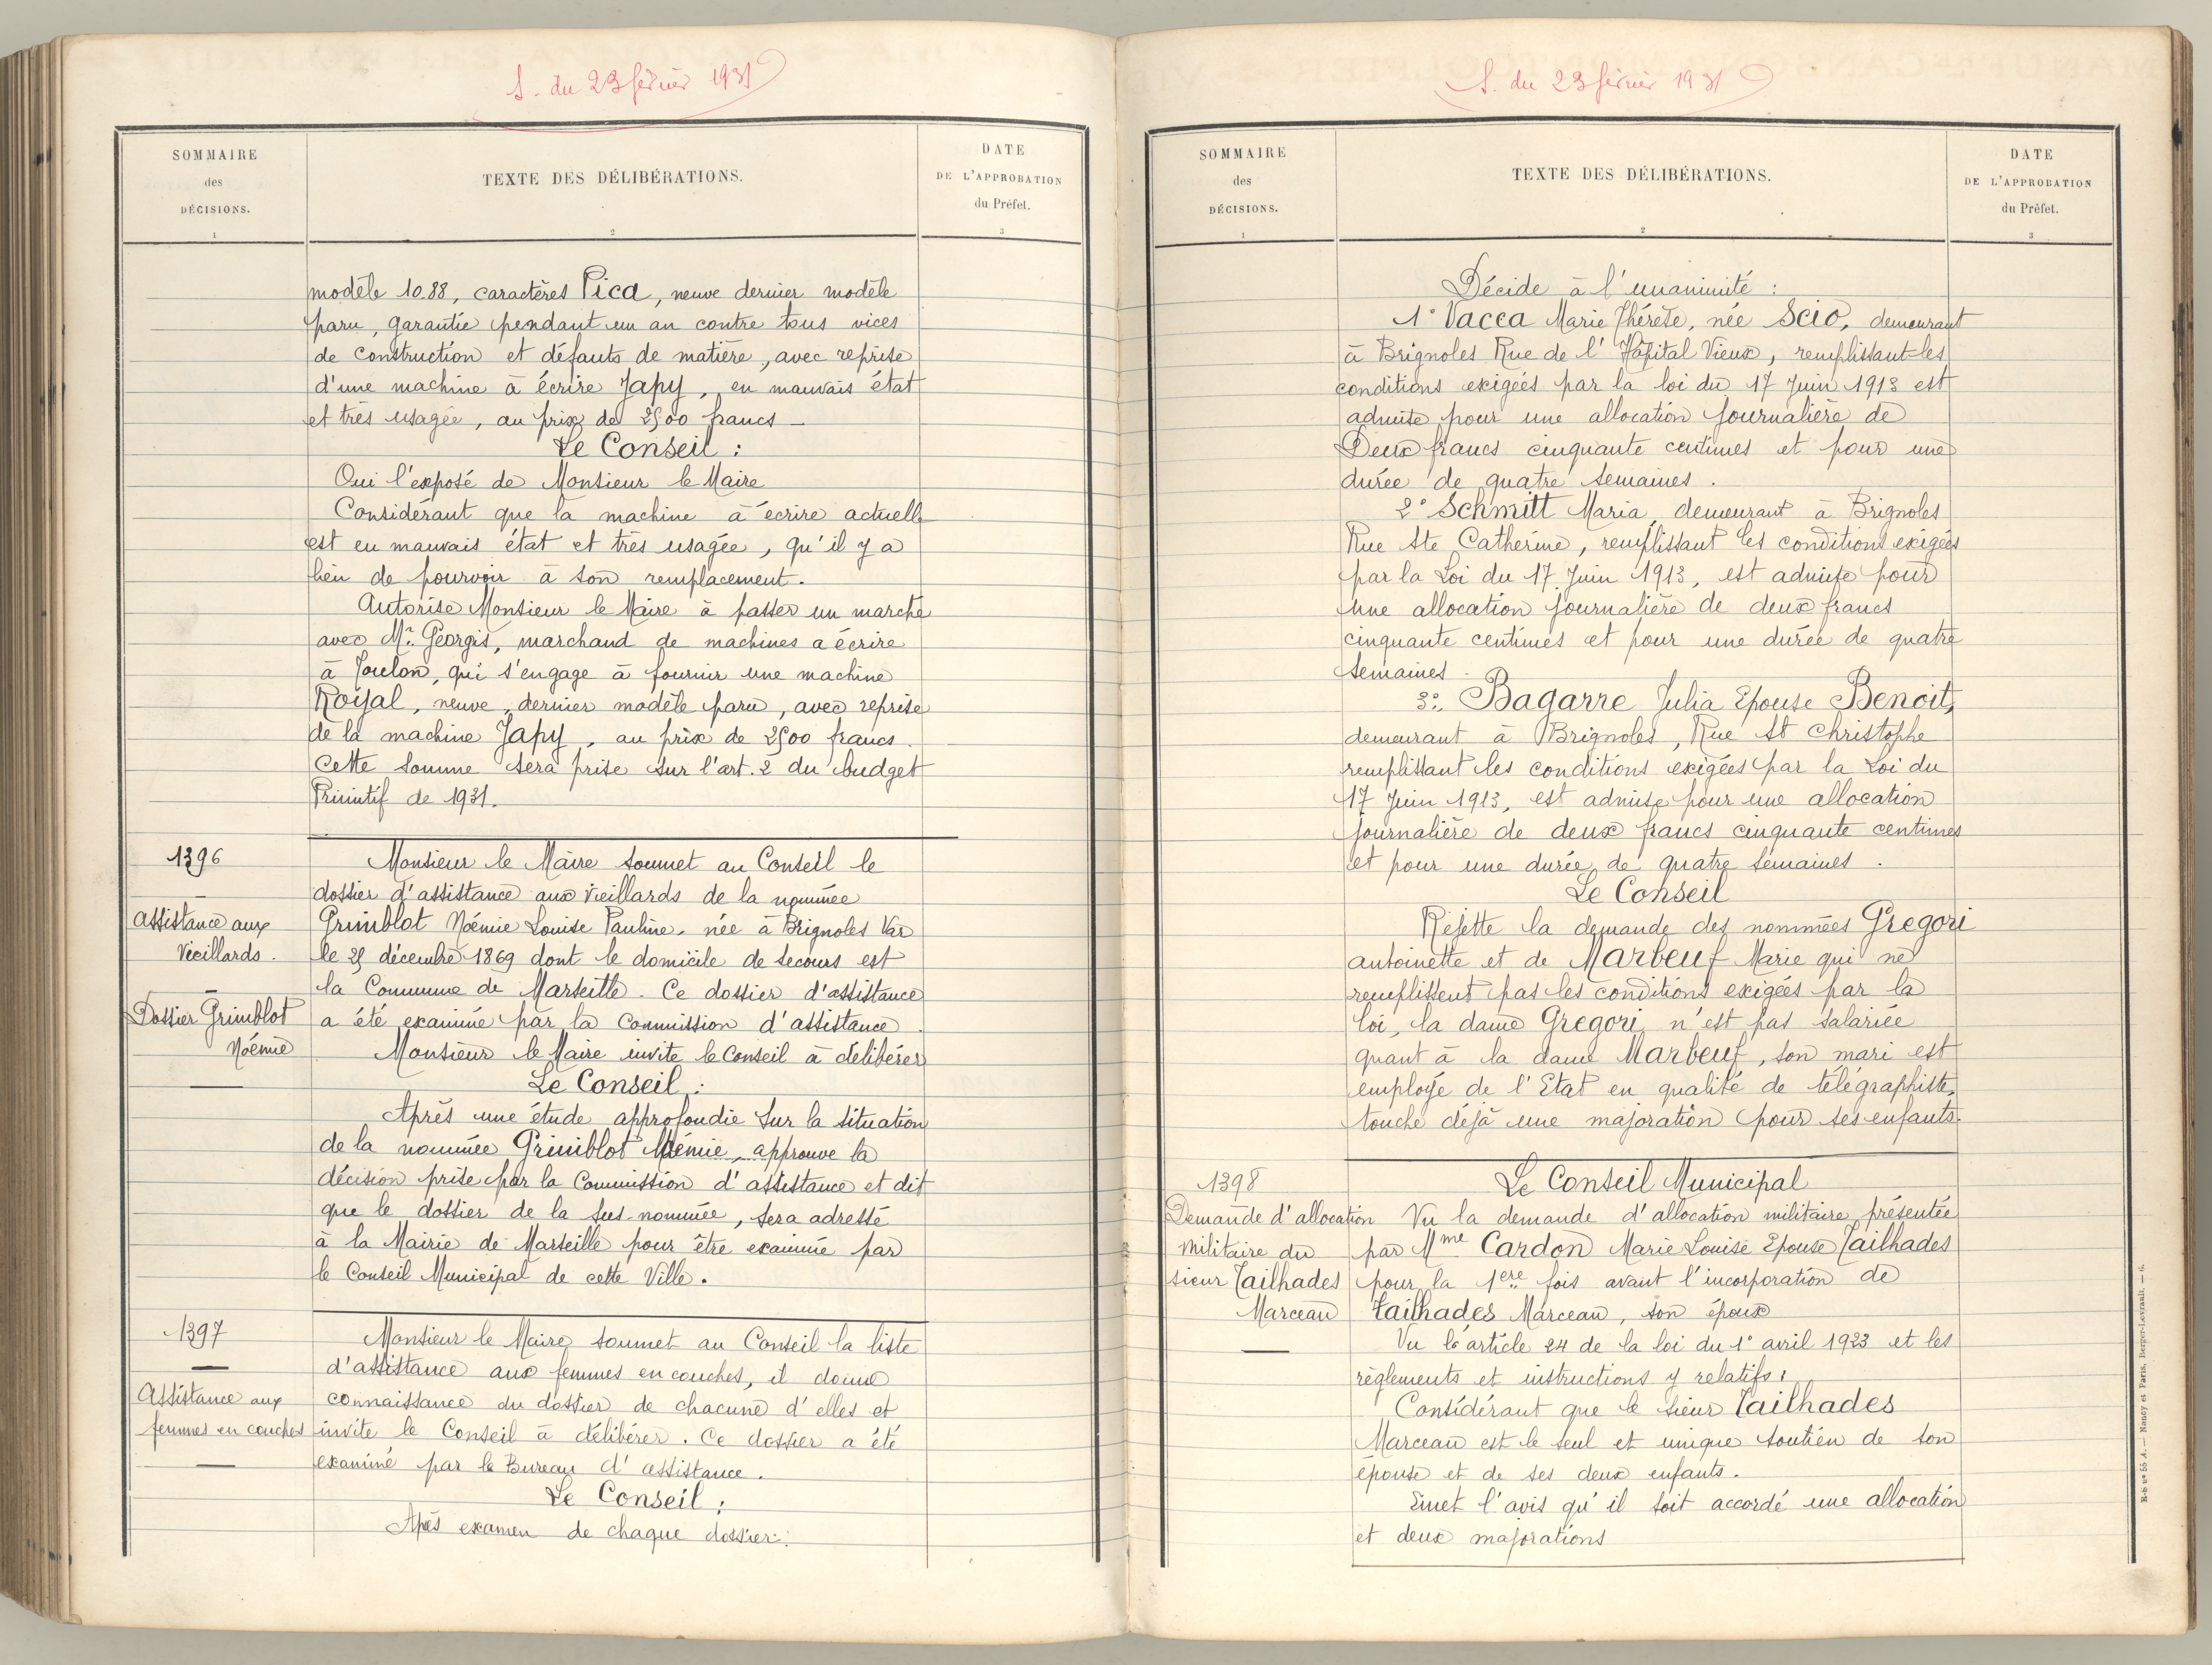 S. du 23 février 1931
SOMMAIRE
des
DÉCISIONS.
1
TEXTE DES DÉLIBÉRATIONS.
2
DATE
DE L'APPROBATION
du Préfet.
3
modèle 10.88, caractères Pica, neuve dernier modèle
paru, garantie pendant un an contre tous vices
de construction et défauts de matière, avec reprise
d'une machine à écrire Japy, en mauvais état
et très usagée, au prix de 2500 francs –
Le Conseil :
Oui l'exposé de Monsieur le Maire
Considérant que la machine à écrire actuelle
est en mauvais état et très usagée, qu'il y a
lieu de pourvoir à son remplacement.
Autorise Monsieur le Maire à passer un marché
avec Mr. Georgis, marchand de machines a écrire
à Toulon, qui s'engage à fournir une machine
Royal, neuve, dernier modèle paru, avec reprise
de la machine Japy, au prix de 2500 francs.
Cette somme sera prise sur l'art. 2 du budget
Primitif de 1931.
1396
Assistance aux
Vieillards.
Dossier Grimblot
Noémie
Monsieur le Maire soumet au Conseil le
dossier d'assistance aux vieillards de la nommée
Grimblot Noémie Louise Pauline, née à Brignoles Var
le 25 décembre 1869 dont le domicile de secours est
la Commune de Marseille. Ce dossier d'assistance
a été examiné par la Commission d'assistance.
Monsieur le Maire invite le Conseil à délibérer
Le Conseil :
Après une étude approfondie sur la situation
de la nommée Grimblot Noémie, approuve la
décision prise par la Commission d'assistance et dit
que le dossier de la sus-nommée, sera adressé
à la Mairie de Marseille pour être examiné par
le Conseil Municipal de cette Ville.
1397
Assistance aux
femmes en couches
Monsieur le Maire soumet au Conseil la liste
d'assistance aux femmes en couches, il donne
connaissance du dossier de chacune d'elles et
invite le Conseil à délibérer. Ce dossier a été
examiné par le Bureau d'assistance.
Le Conseil :
Après examen de chaque dossier :
S. du 23 février 1931
SOMMAIRE
des
DÉCISIONS.
1
TEXTE DES DÉLIBÉRATIONS.
2
DATE
DE L'APPROBATION
du Préfet.
3
Décide à l'unanimité :
1° Vacca Marie Thérèse, née Scio, demeurant
à Brignoles Rue de l'Hôpital Vieux, remplissant les
conditions exigées par la loi du 17 Juin 1913 est
admise pour une allocation journalière de
Deux francs cinquante centimes et pour une
durée de quatre semaines.
2° Schmitt Maria demeurant à Brignoles
Rue Ste Catherine, remplissant les conditions exigées
par la Loi du 17 Juin 1913, est admise pour
une allocation journalière de deux francs
cinquante centimes et pour une durée de quatre
semaines.
3° Bagarre Julia Epouse Benoit,
demeurant à Brignoles, Rue St Christophe
remplissant les conditions exigées par la Loi du
17 Juin 1913, est admise pour une allocation
journalière de deux francs cinquante centimes
et pour une durée de quatre semaines.
Le Conseil
Rejette la demande des nommées Gregori
antoinette et de Marbeuf Marie qui ne
remplissent pas les conditions exigées par la
loi, la dame Gregori n'est pas salariée
quant à la dame Marbeuf, son mari est
employé de l'Etat en qualité de télégraphiste,
touche déjà une majoration pour ses enfants.
1398
Demande d'allocation
militaire du
sieur Tailhades
Marceau
Le Conseil Municipal
Vu la demande d'allocation militaire présentée
par Mme Cardon Marie Louise Epouse Tailhades
pour la 1ère fois avant l'incorporation de
Tailhades Marceau, son époux
Vu l'article 24 de la loi du 1° avril 1923 et les
règlements et instructions y relatifs ;
Considérant que le sieur Tailhades
Marceau est le seul et unique soutien de son
épouse et de ses deux enfants.
Emet l'avis qu'il soit accordé une allocation
et deux majorations
R-b n° 55 A. — Nancy et Paris, Berger-Levrault. — 6.